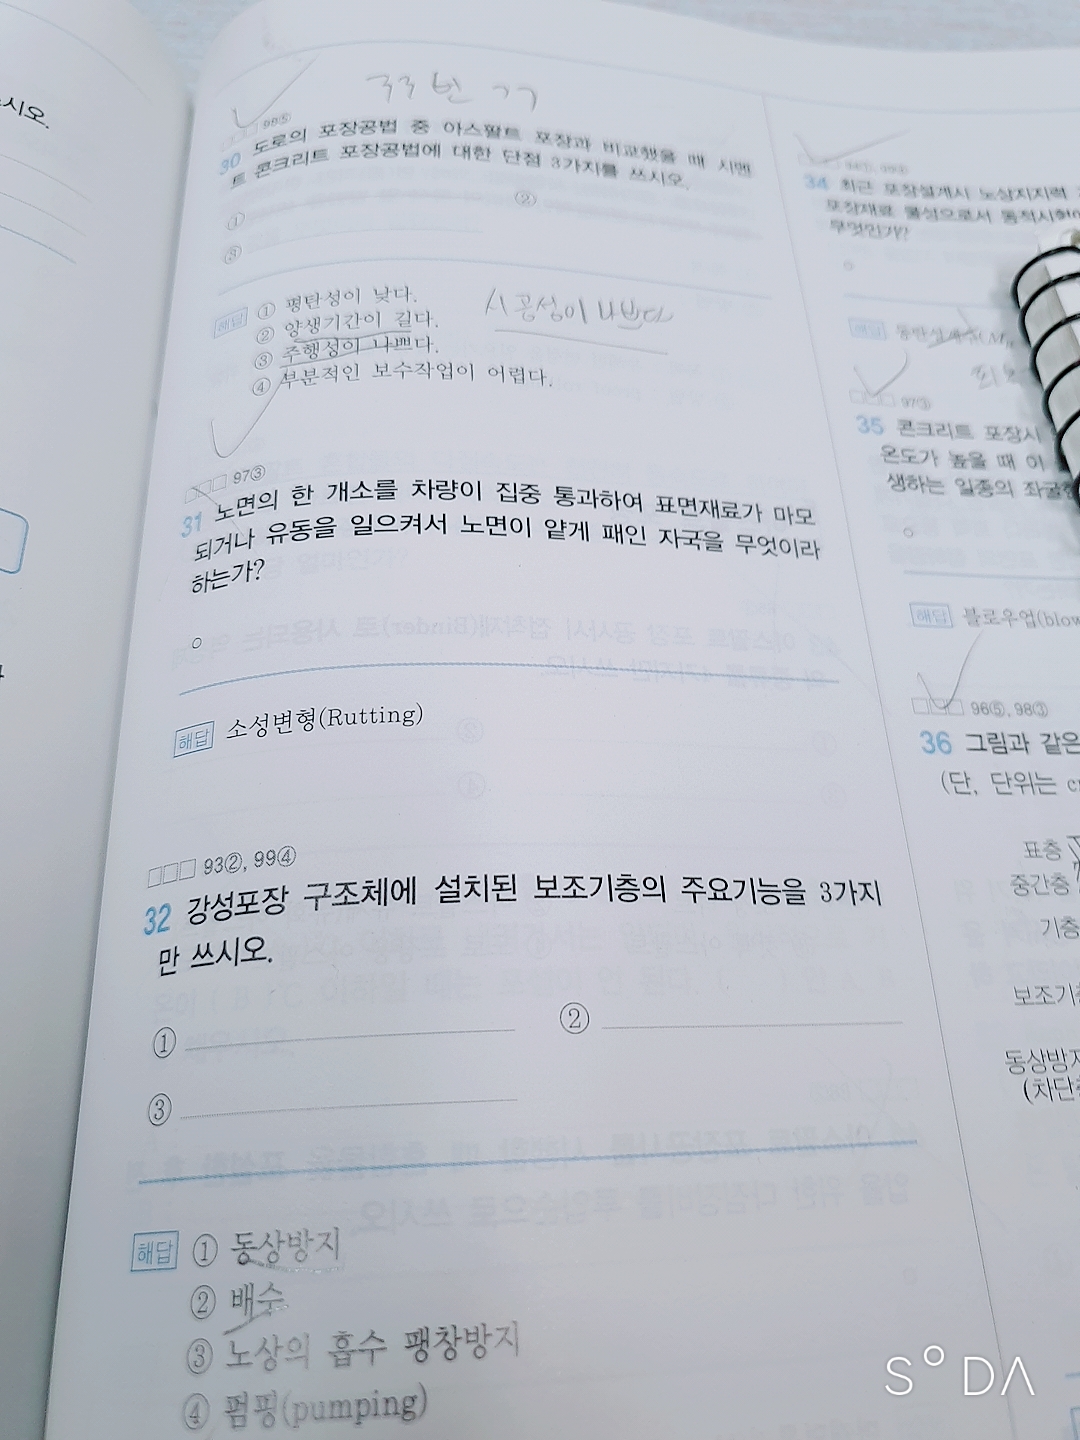 쓰시오.
99⑤
30 도로의 포장공법 중 아스팔트 포장과 비교했을 때 시멘
트 콘크리트 포장공법에 대한 단점 3가지를 쓰시오.
① ②
③
해답 ① 평탄성이 낮다.
② 양생기간이 길다.
③ 주행성이 나쁘다.
④ 부분적인 보수작업이 어렵다.
시공성이 나쁘다
97③
31 노면의 한 개소를 차량이 집중 통과하여 표면재료가 마모
되거나 유동을 일으켜서 노면이 얕게 패인 자국을 무엇이라
하는가?
해답 소성변형(Rutting)
93②, 99④
32 강성포장 구조체에 설치된 보조기층의 주요기능을 3가지
만 쓰시오.
① ②
③
해답 ① 동상방지
② 배수
③ 노상의 흡수 팽창방지
④ 펌핑(pumping)
34 최근 포장설계시 노상지지력
포장재료 물성으로서 동적시험
무엇인가?
해답
97③
35 콘크리트 포장시
온도가 높을 때 이
생하는 일종의 좌굴
해답 블로우업(blow
96⑤, 98③
36 그림과 같은
(단, 단위는 c
표층
중간층
기층
보조기층
동상방지
(차단층
S°DA